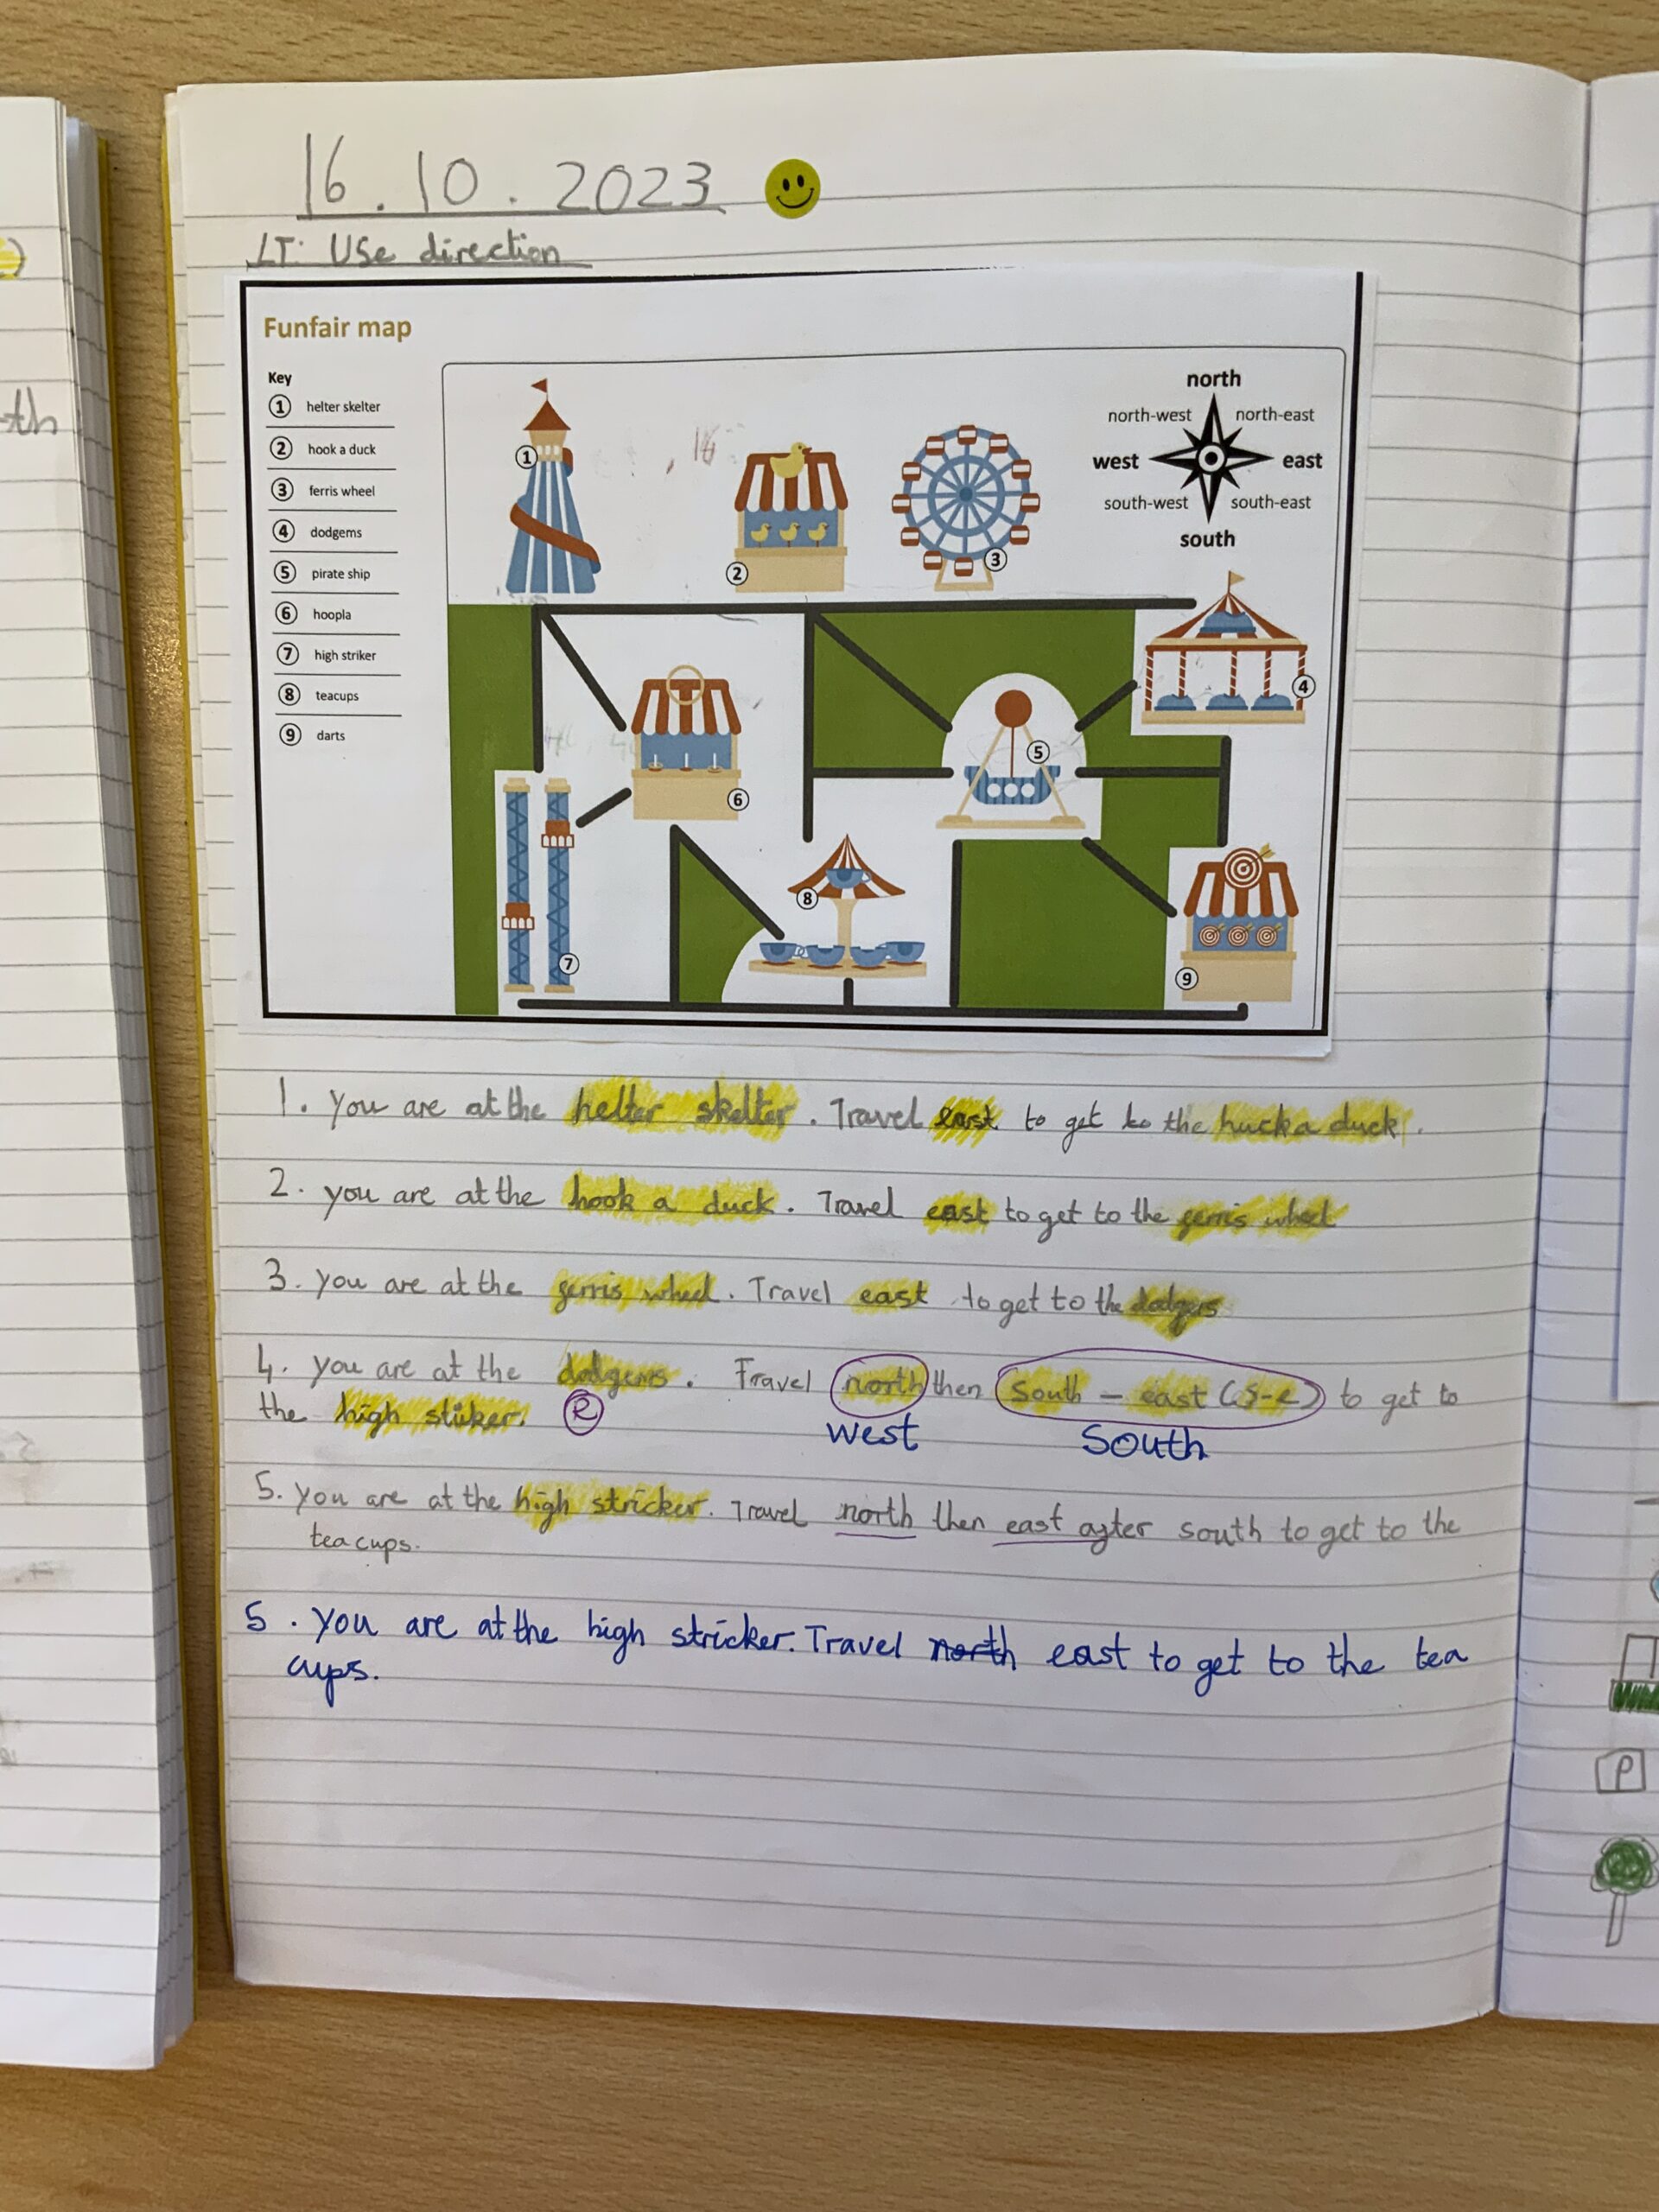 16.10.2023
LT: Use direction
Funfair map
Key
1 helter skelter
2 hook a duck
3 ferris wheel
4 dodgems
5 pirate ship
6 hoopla
7 high striker
8 teacups
9 darts
north
north-west north-east
west east
south-west south-east
south
1
2
3
4
5
6
7
8
9
1. you are at the helter skelter. Travel east to get to the huck a duck.
2. you are at the hook a duck. Travel east to get to the ferris wheel
3. you are at the ferris wheel. Travel east to get to the dodgers
4. you are at the dodgems. Travel north then South - east (S-e) to get to
the high sticker. R
west South
5. you are at the high stricker. Travel north then east after south to get to the
tea cups.
5. you are at the high stricker. Travel north east to get to the tea
cups.
th
P